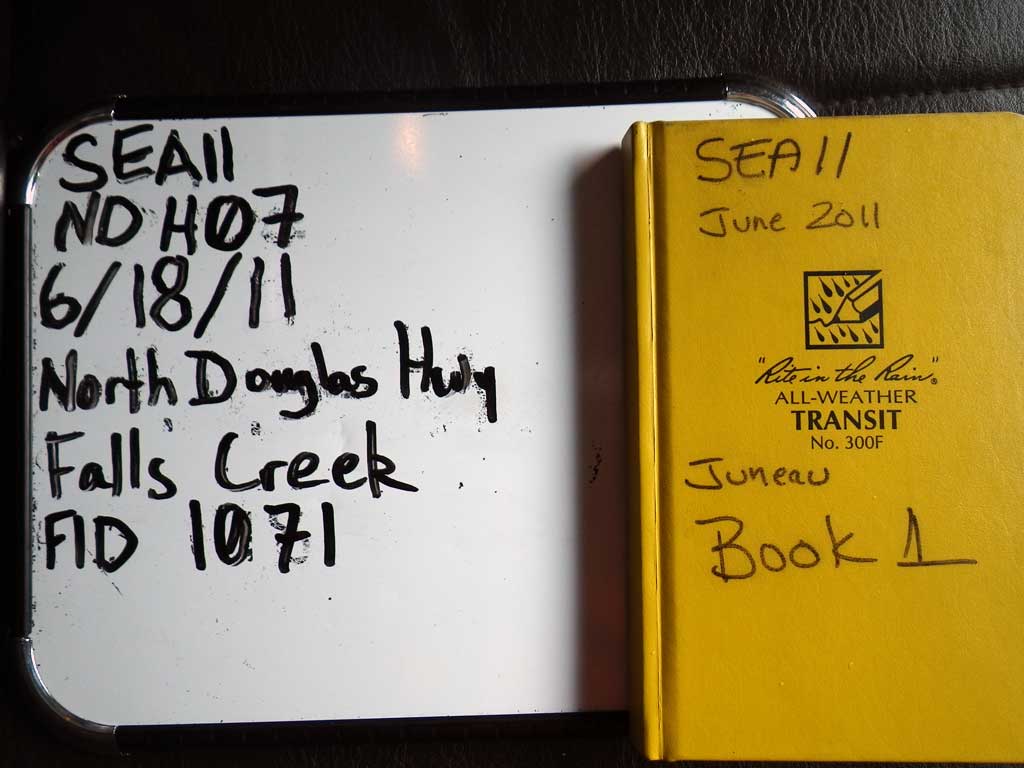 SEA11
ND H07
6/18/11
North Douglas Hwy
Falls Creek
FID 1071
SEA11
June 2011
"Rite in the Rain"®
ALL-WEATHER
TRANSIT
No. 300F
Juneau
Book 1